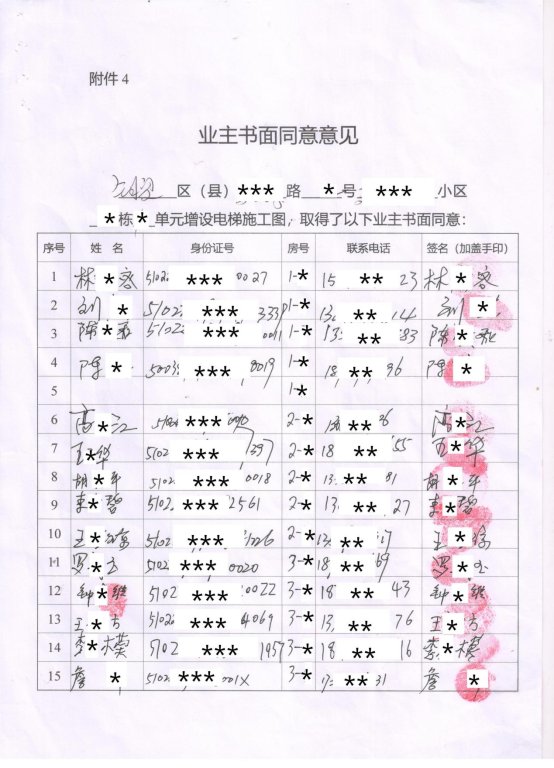 附件4
业主书面同意意见
区（县）*** 路 * 号 *** 小区
*栋*单元增设电梯施工图，取得了以下业主书面同意：
序号 姓 名 身份证号 房号 联系电话 签名（加盖手印）
1 林*容 5102 *** 0027 1-* 15 ** 23 林*容
2 刘* 5102 *** 333 1-* 13 ** 14 刘*
3 陈* 5102 *** 1-* 13 ** 83 陈*
4 陈* 5003 *** 8019 1-* 18 ** 96 陈*
5 1-*
6 高*江 *** 2-* ** 高*江
7 王*华 5102 *** 1397 2-* 18 ** 55 王*华
8 胡*平 5102 *** 0018 2-* 13 ** 81 胡*平
9 李*碧 5102 *** 2561 2-* 13 ** 27 李*碧
10 王*琼 5102 *** 2-* ** 17 王*
11 罗* 5102 *** 0020 3-* 18 ** 69 罗*
12 钟*维 5102 *** 0022 3-* 18 ** 43 钟*维
13 王*方 5102 *** 4069 3-* 13 ** 76 王*方
14 李*模 5102 *** 1957 3-* 18 ** 16 李*模
15 詹* 5102 *** 001X 3-* ** 31 詹*